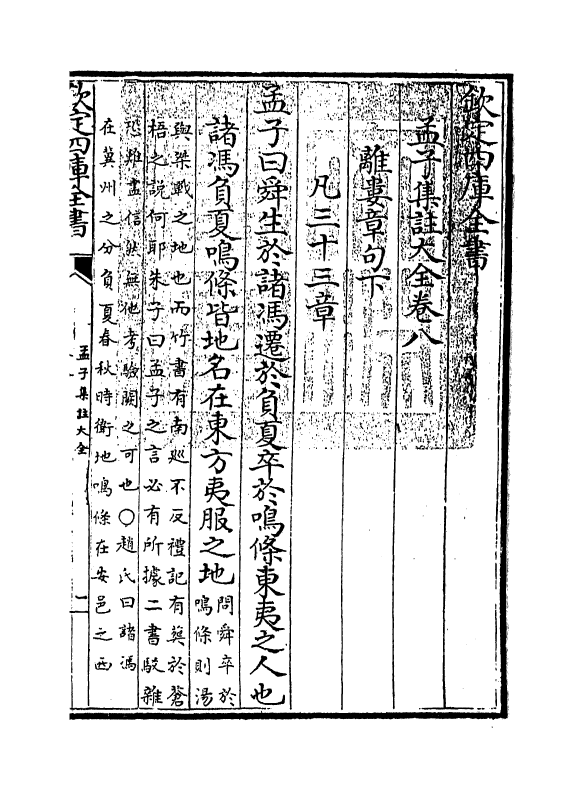 欽定四庫全書
孟子集註大全卷八
離婁章句下
凡三十三章
孟子曰舜生於諸馮遷於負夏卒於鳴條東夷之人也
諸馮負夏鳴條皆地名在東方夷服之地
問舜卒於
鳴條則湯
與桀戰之地也而竹書有南巡不反禮記有葬於蒼
梧之説何耶朱子曰孟子之言必有所據二書駁雜
恐難盡信然無他考驗闕之可也〇趙氏曰諸馮
在冀州之分負夏春秋時衛地鳴條在安邑之西
欽定四庫全書
孟子集註大全
一